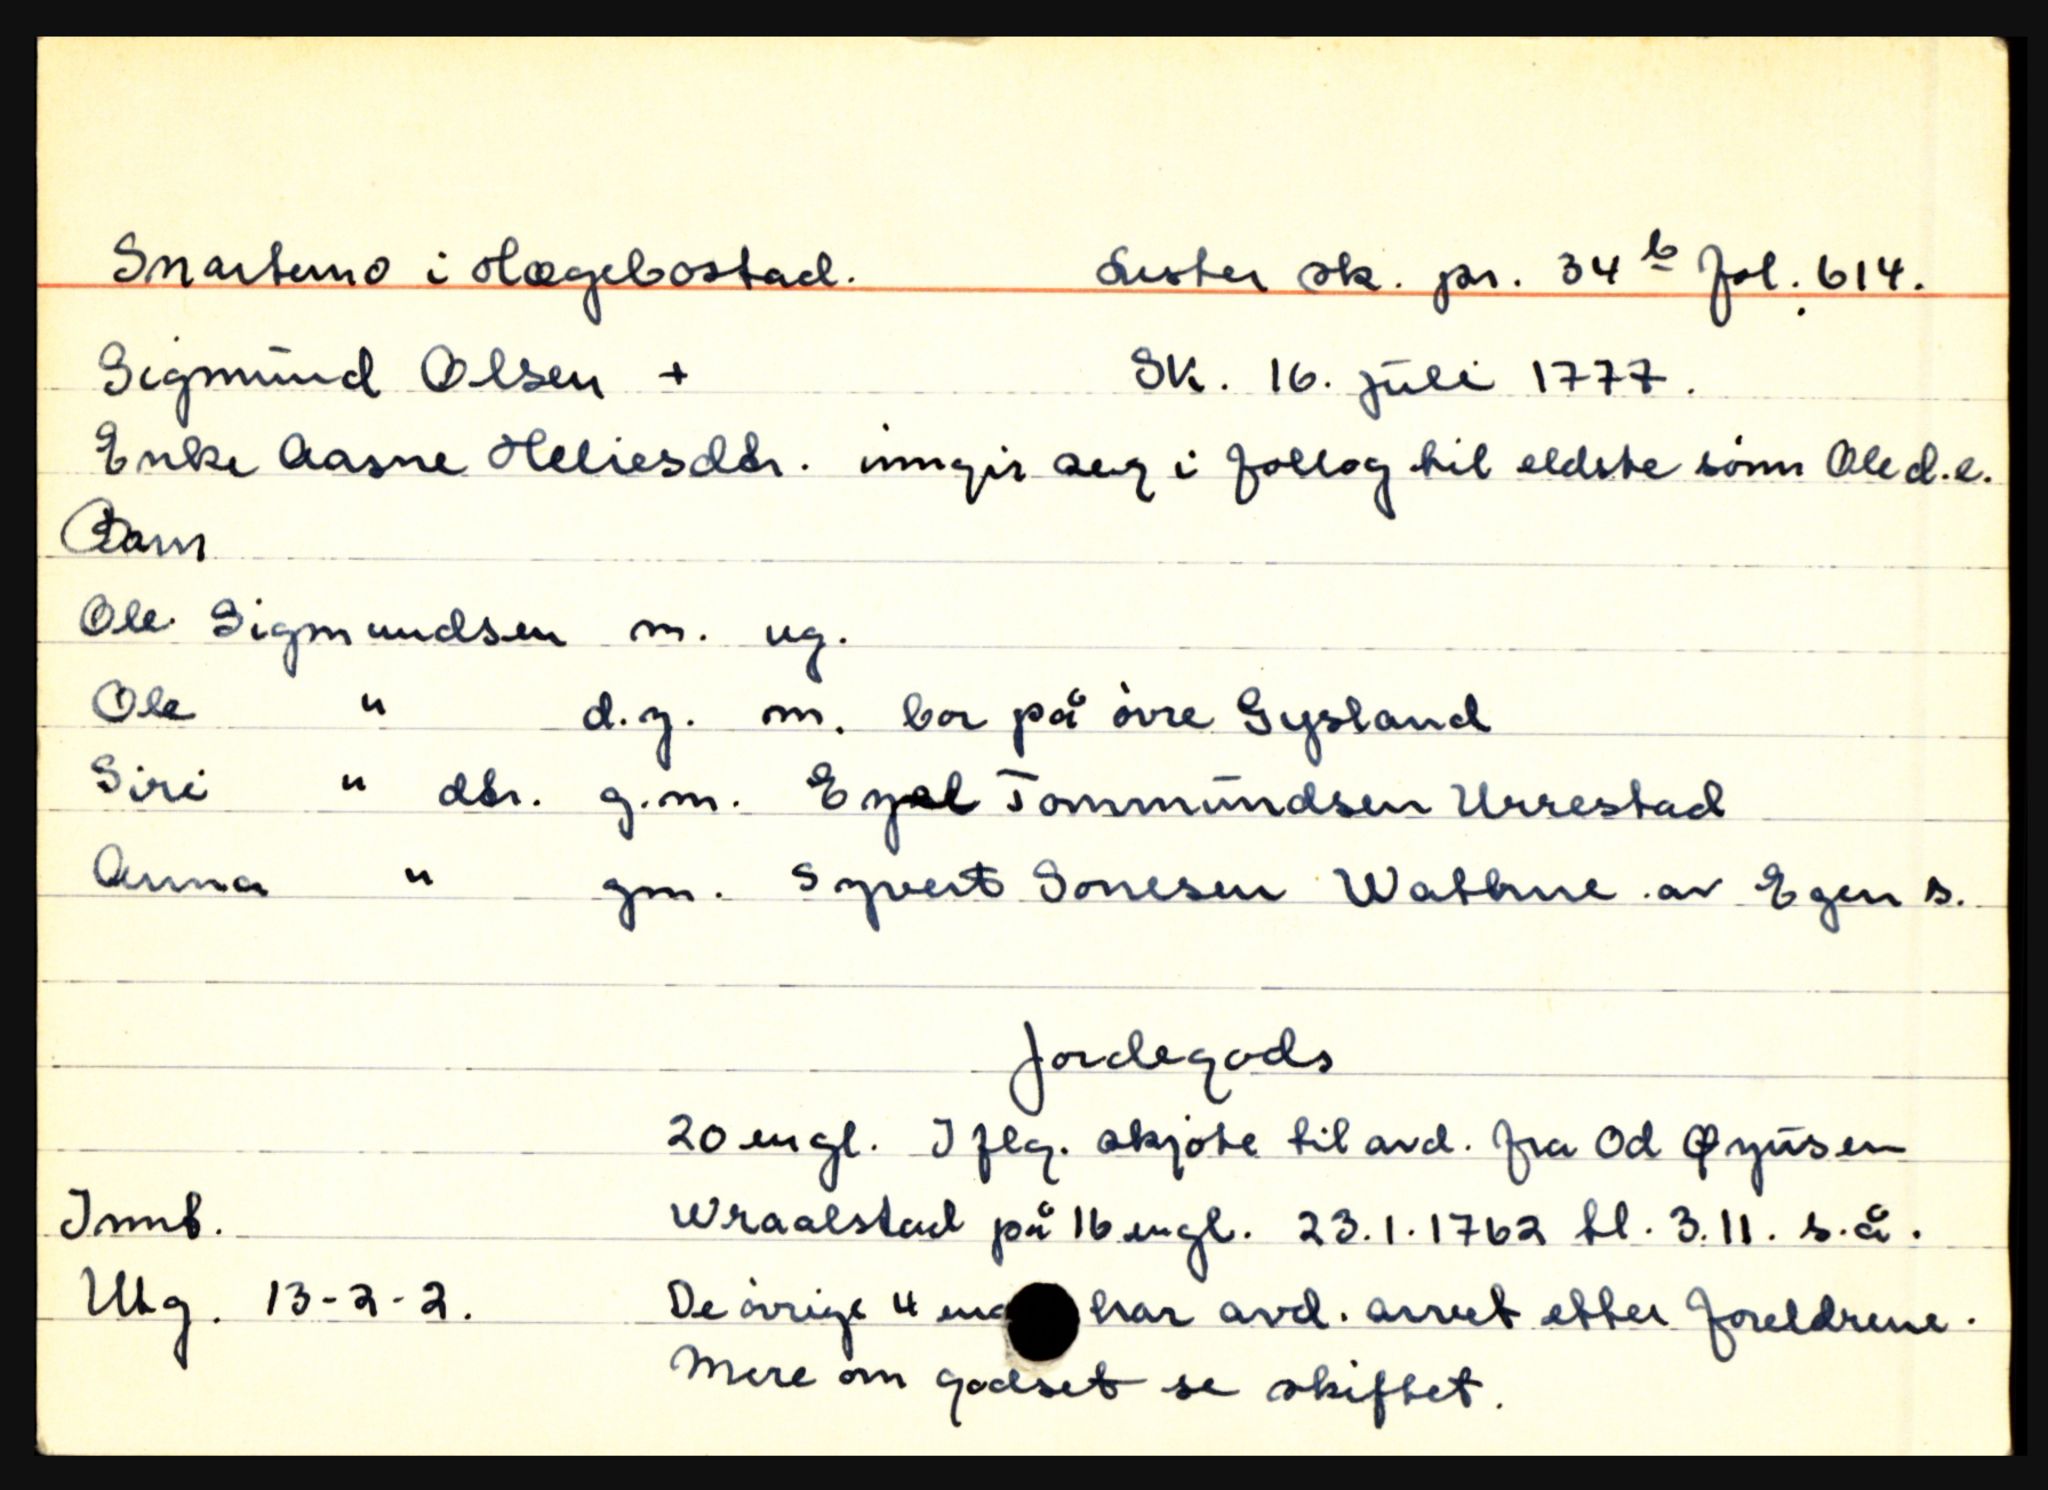 Snartemo i Hægebostad. Lister sk. pr. 34 b fol. 614.
Sigmund Olsen + Sk. 16. juli 1777.
Enke Aasne Heliesdtr. inngir seg i follog til eldste sønn Ole d.e.
Barn
Ole Sigmundsen m. ug.
Ole " d.y. m. bor på øvre Gysland
Siri " dtr. g.m. Eyel Tommundsen Urrestad
Anna " gm. Syvert Sonesen Wathne av Egen s.
Jordegods
20 engl. Iflg. skjøte til avd. fra Od Øyusen
Innb. Wraalstad på 16 engl. 23.1.1762 tl. 3.11. s.å.
Utg. 13-2-2. De øvrige 4 har avd. arvet etter foreldrene.
Mere om godset se skiftet.